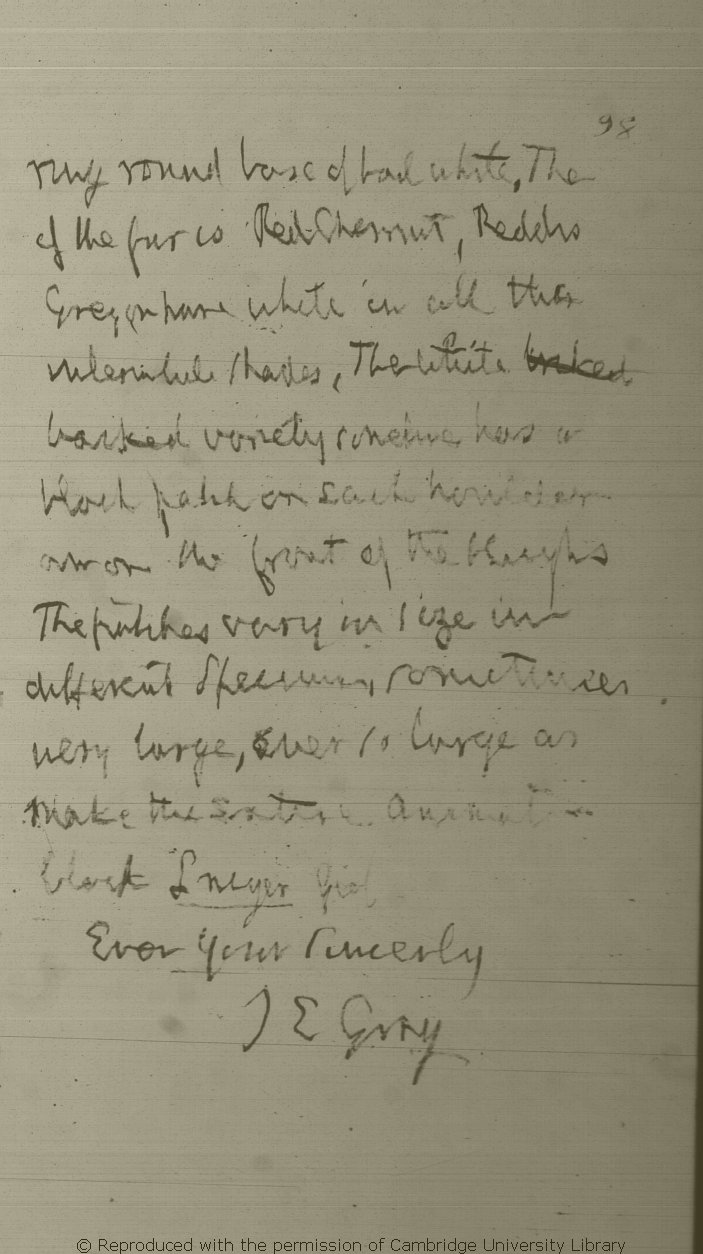 98
ring round base of tail white, The
of the fur is Red Chesnut, Reddis
Grey or pure white in all their
shades, The White
backed variety has a
black patch on each shoulder
and on the front of the thighs
The patches vary in size in
different Specimens, sometimes
very large, ever so large as
make the entire animal
black
Ever Your Sincerly
J E Gray
© Reproduced with the permission of Cambridge University Library